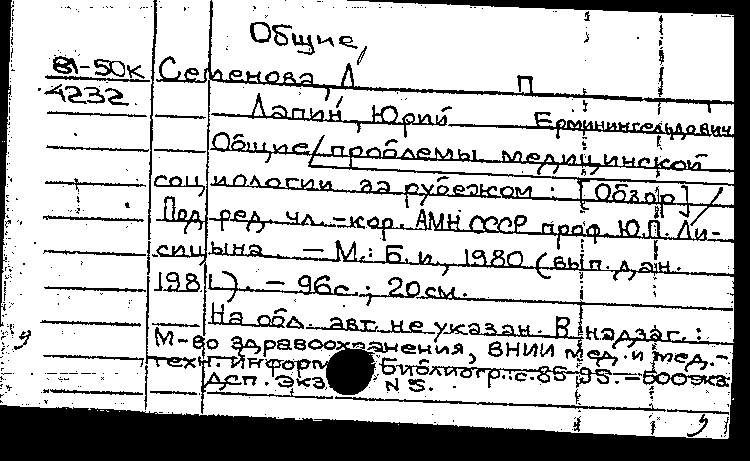 Общие,
81-50к Семенова, Л П
4232
Лапин, Юрий Ерминингельдович
Общие/проблемы медицинской
социологии за рубежом: [Обзор]/
Под ред. чл.-кор. АМН СССР проф. Ю.П. Ли-
сицына. - М.: Б.и., 1980 (вып. дан.
1981). - 96с.; 20см.
На обл. авт. не указан. В надзаг.:
М-во здравоохранения, ВНИИ мед. и мед.-
техн. информ Библиогр.: с. 85-95. - 500экз.
Дсп. Экз N 5.